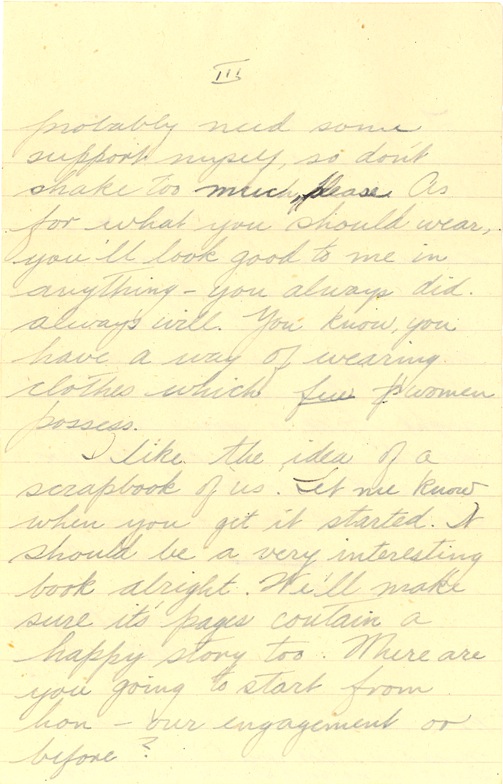 III
probably need some
support myself, so don't
shake too much, please. As
for what you should wear,
you'll look good to me in
anything - you always did.
always will. You know, you
have a way of wearing
clothes which few women
possess.
I like the idea of a
scrapbook of us. Let me know
when you get it started. It
should be a very interesting
book alright. We'll make
sure it's pages contain a
happy story too. Where are
you going to start from
hon - our engagement or
before?